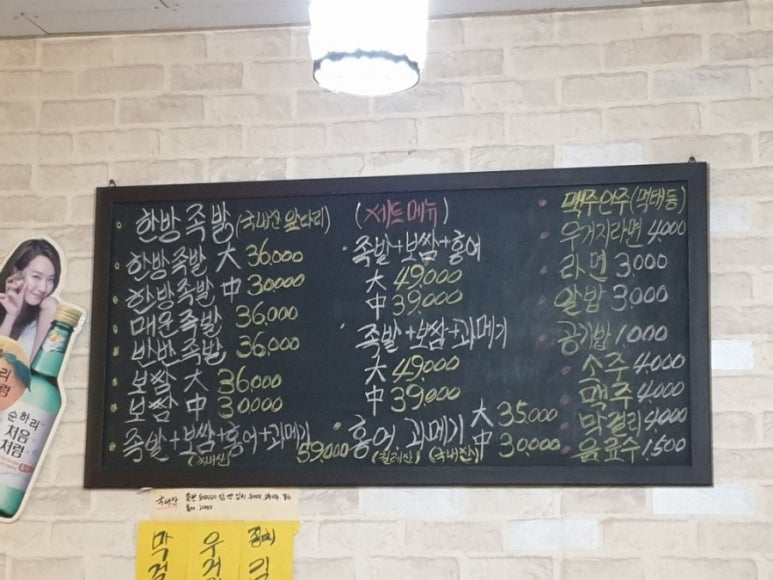 한방족발 (국내산 앞다리)
한방족발 大 36,000
한방족발 中 30,000
매운족발 36,000
반반족발 36,000
보쌈 大 36,000
보쌈 中 30,000
족발+보쌈+홍어+과메기 59,000
(국내산)
(세트메뉴)
족발+보쌈+홍어
大 49,000
中 39,000
족발+보쌈+과메기
大 49,000
中 39,000
홍어, 과메기 大 35,000
中 30,000
(칠레산) (국내산)
맥주안주(먹태등)
우거지라면 4,000
라면 3,000
알밥 3,000
공기밥 1,000
소주 4,000
맥주 4,000
막걸리 4,000
음료수 1,500
순하리
처음
처럼
국내산
막 우
걸 거